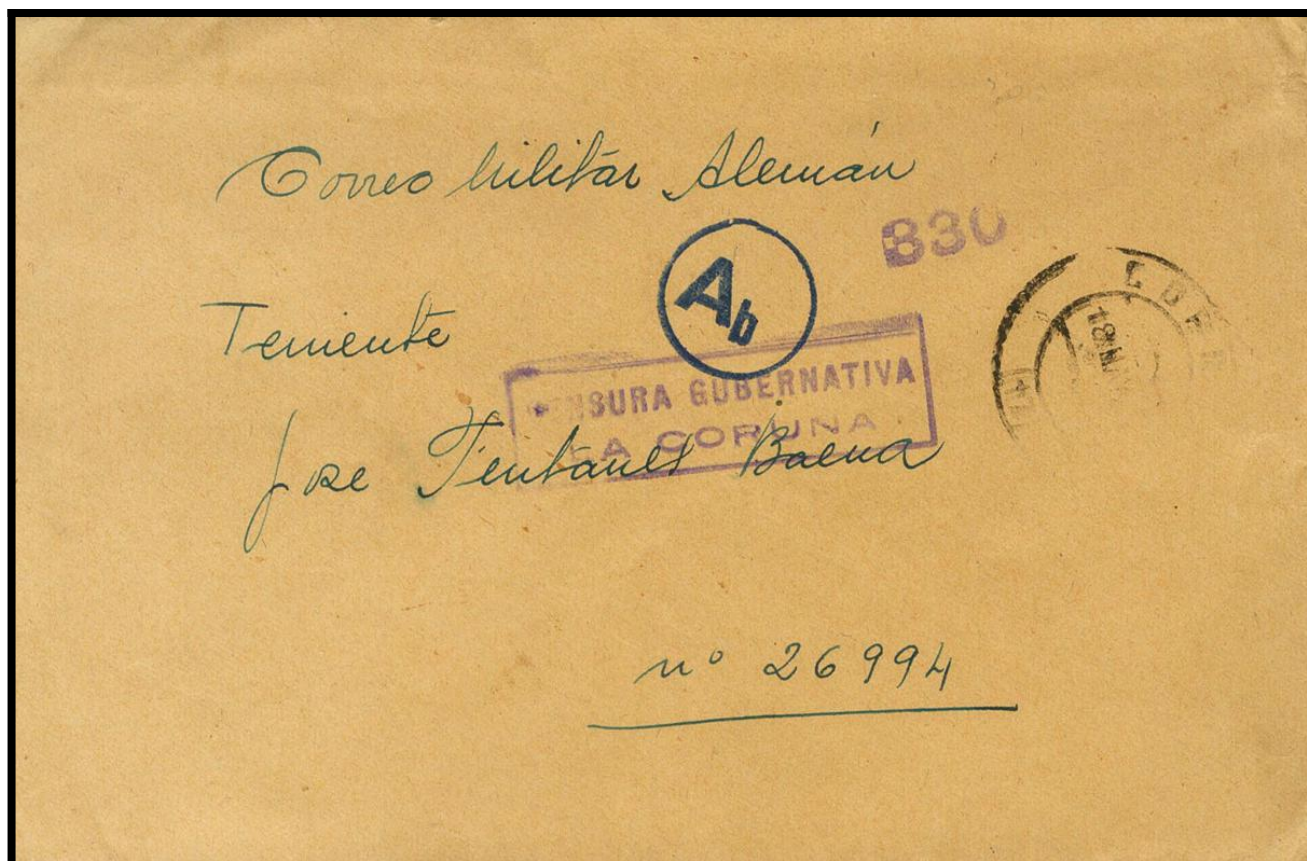 Correo Militar Alemán
830
Ab
Teniente
CENSURA GUBERNATIVA
LA CORUNA
Jose Baena
nº 26994